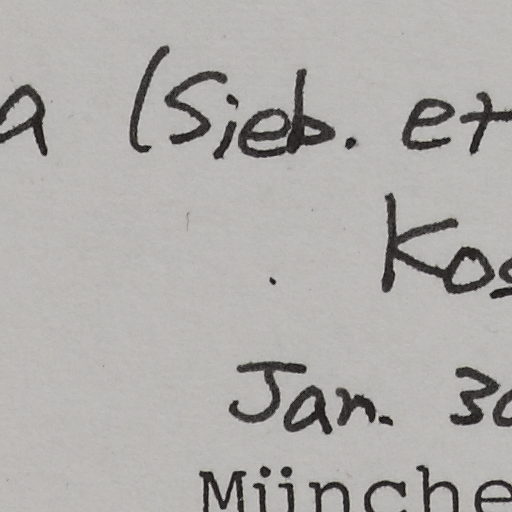 a (Sieb. et
Kos
Jan. 30
Münche